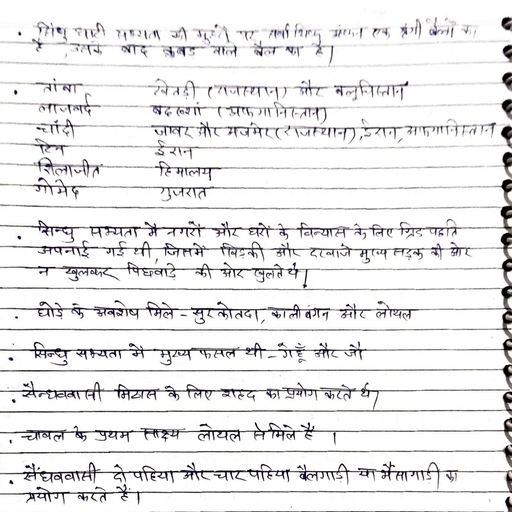 . सिंधु घाटी सभ्यता की मुहरों पर सर्वाधिक अंकन एक श्रृंगी बैलों का
है, उसके बाद कुबड वाले बैल का है।
तांबा खेतड़ी (राजस्थान) और बलुचिस्तान
लाजवर्द बदख्शां (अफगानिस्तान)
चाँदी जावर और अजमेर (राजस्थान), ईरान, अफगानिस्तान
टिन ईरान
शिलाजीत हिमालय
गोमेद गुजरात
. सिन्धु सभ्यता में नगरों और घरों के विन्यास के लिए ग्रिड पद्दति
अपनाई गई थी, जिसमें खिड़की और दरवाजे मुख्य सड़क की ओर
न खुलकर पिछवाडे की ओर खुलते थे।
. घोड़े के अवशेष मिले - सुरकोतदा, कालीबंगन और लोथल
. सिन्धु सभ्यता में मुख्य फसल थी - गेहूँ और जौ
. सैन्धववासी मिठास के लिए शहद का प्रयोग करते थे।
. चावल के प्रथम साक्ष्य लोथल से मिले हैं ।
. सैंधववासी दो पहिया और चार पहिया बैलगाडी या भैंसागाडी का
प्रयोग करते हैं।